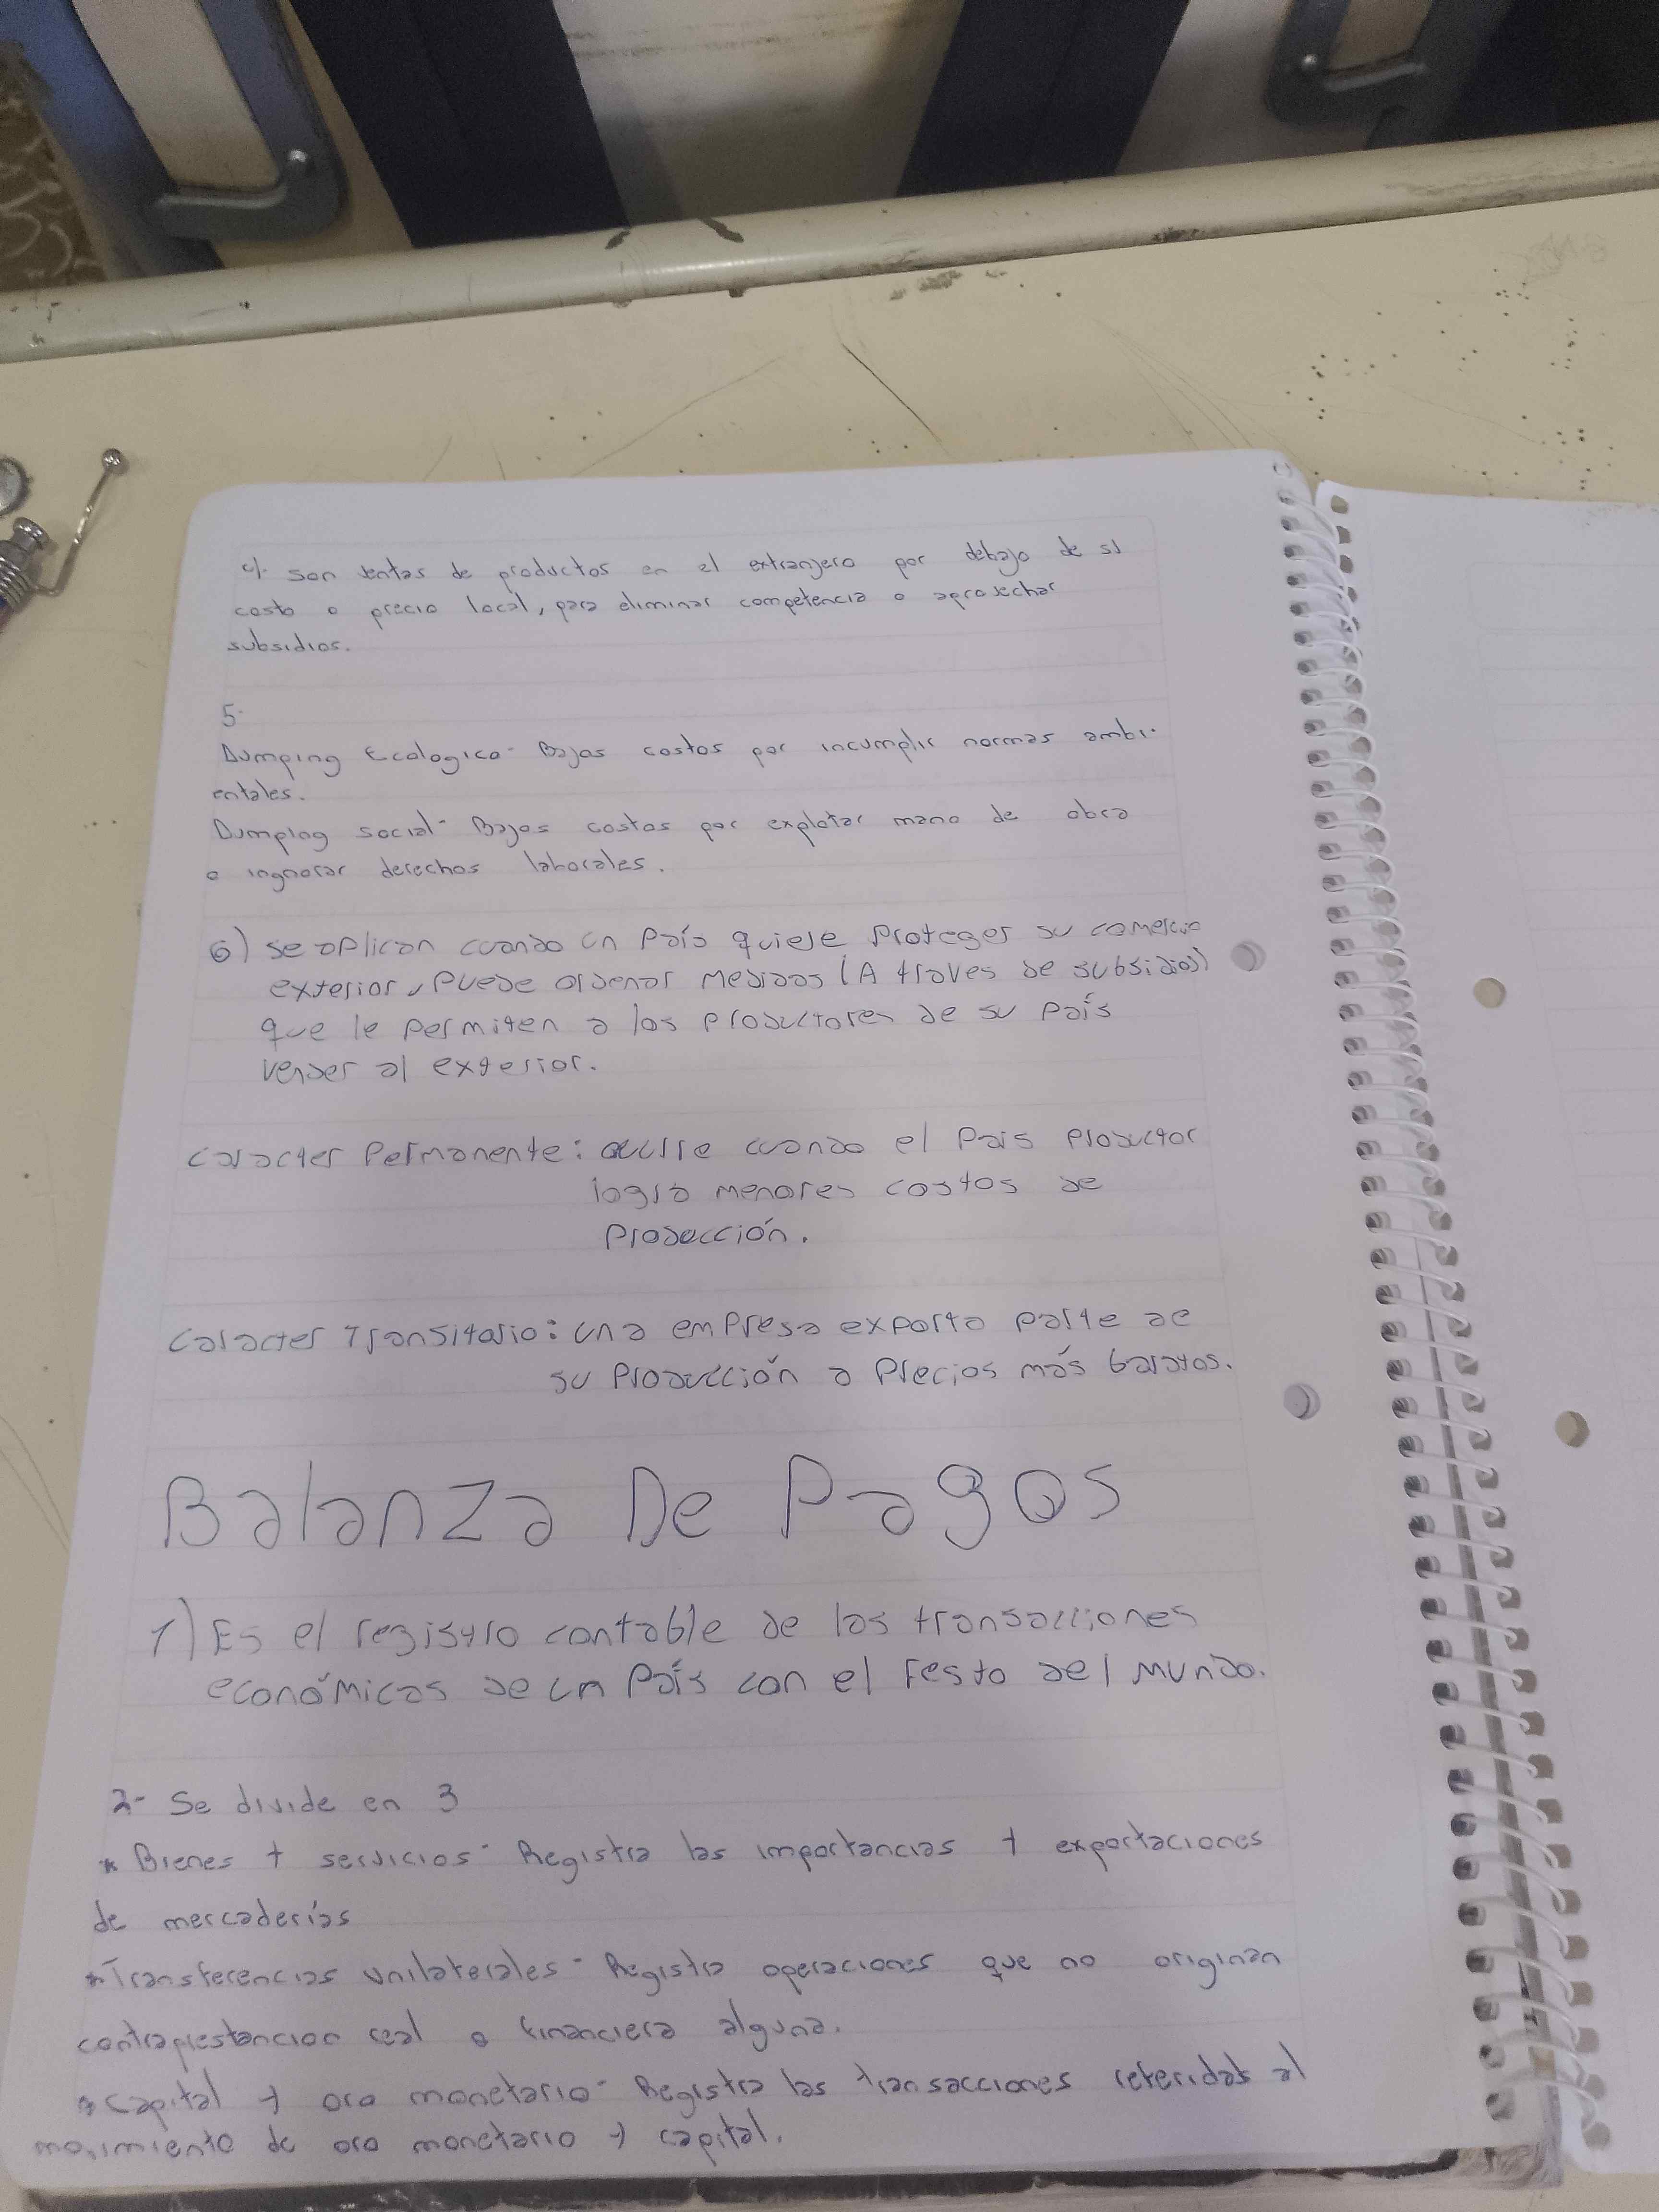 4- son ventas de productos en el extranjero por debajo de su
costo o precio local, para eliminar competencia o aprovechar
subsidios.
5-
Dumping Ecologico- Bajos costos por incumplir normas ambi-
entales.
Dumping social- Bajos costos por explotar mano de obra
o ingnorar derechos laborales.
6) se aplican cuando un País quiere Proteger su comercio
exterior, Puede ordenar Medidas (A traves de subsidios)
que le permiten a los Productores de su País
vender al exterior.
caracter Permanente: ocurre cuando el Pais Productor
logra menores costos de
Producción.
caracter Transitario: una empresa exporta parte de
su Producción a Precios más baratos.
Balanza De Pagos
1) Es el registro contable de las transacciones
económicas de un País con el resto del mundo.
2- Se divide en 3
* Bienes + servicios- Registra las importancias + exportaciones
de mercaderías
* Transferencias unilaterales- Registra operaciones que no originan
contraprestancion real o financiera alguna.
* Capital + oro monetario- Registra las transacciones referidas al
movimiento de oro monetario + capital.